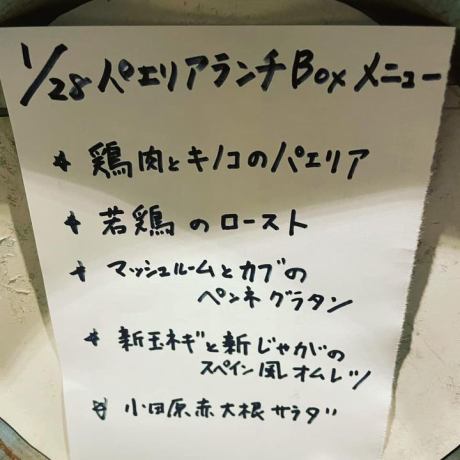 1/28 パエリアランチBoxメニュー
* 鶏肉とキノコのパエリア
* 若鶏のロースト
* マッシュルームとカブの
ペンネグラタン
* 新玉ネギと新じゃがの
スペイン風オムレツ
* 小田原赤大根サラダ